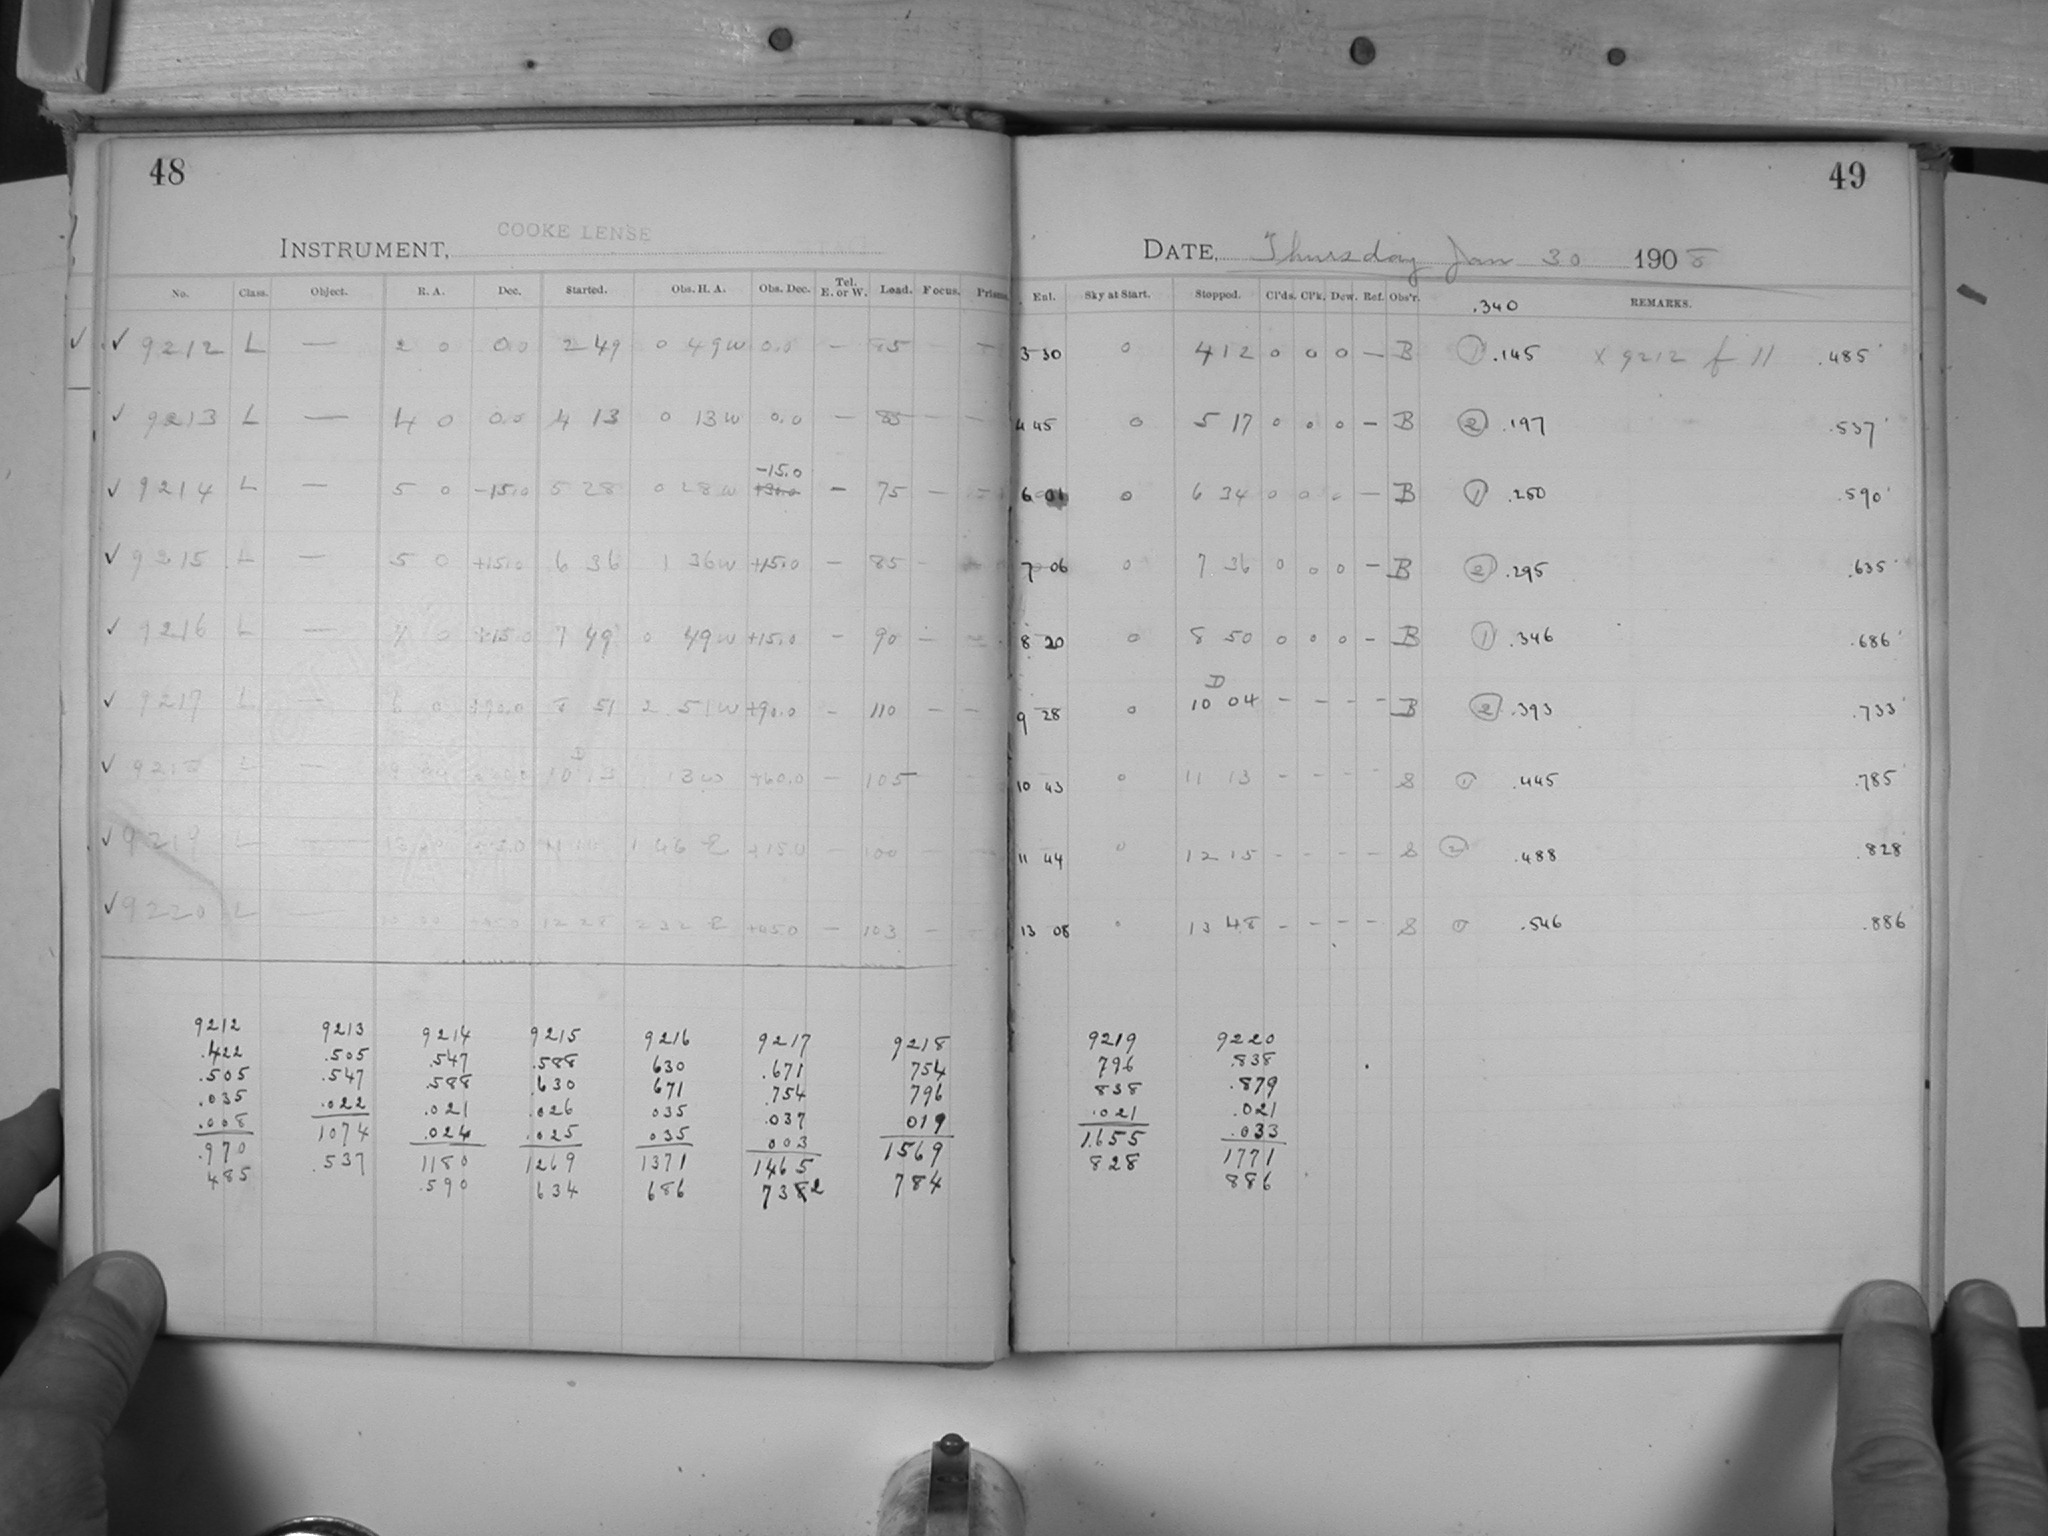 48
INSTRUMENT, COOKE LENSE
No. Class. Object. R. A. Dec. Started. Obs. H. A. Obs. Dec. Tel. E. or W. Load. Focus. Prisms.
✓ ✓ 9212 L — 2 0 0.0 2 49 0 49 W 0.0 — 85 —
✓ 9213 L — 4 0 0.0 4 13 0 13 W 0.0 — 85 — —
-15.0
✓ 9214 L — 5 0 -15.0 5 28 0 28 W +30.0 — 75 —
✓ 9215 L — 5 0 +15.0 6 36 1 36 W +15.0 — 85 —
✓ 9216 L — 7 0 +15.0 7 49 0 49 W +15.0 — 90 — —
✓ 9217 L — 6 0 +90.0 8 51 2 51 W +90.0 — 110 — —
D
✓ 9218 L — 10 13 13 W +60.0 — 105 —
✓ 9219 L — 1 46 E +15.0 — 100 — —
✓ 9220 L — 12 28 2 32 E +45.0 — 103 —
9212 9213 9214 9215 9216 9217 9218
.422 .505 .547 .588 630 .671 754
.505 .547 .588 .630 671 .754 796
.035 .022 .021 .026 035 .037 019
.008 1074 .024 .025 035 003 1569
.970 .537 1180 1269 1371 1465 784
485 .590 634 686 7382
49
DATE, Thursday Jan 30 1908
Ent. Sky at Start. Stopped. Cl'ds. Cl'k. Dew. Ref. Obs'r. .340 REMARKS.
3 30 0 4 12 0 0 0 — B ① .145 x 9212 f 11 .485
4 45 0 5 17 0 0 0 — B ② .197 .537
6 01 0 6 34 0 0 0 — B ① .250 .590
7 06 0 7 36 0 0 0 — B ② .295 .635
8 20 0 8 50 0 0 0 — B ① .346 .686
D
9 28 0 10 04 — — — — B ② .393 .733
10 43 0 11 13 — — — — S ① .445 .785
11 44 0 12 15 — — — — S ② .488 .828
13 08 0 13 48 — — — — S ① .546 .886
9219 9220
796 .838
838 .879
.021 .021
1.655 .033
828 1771
886